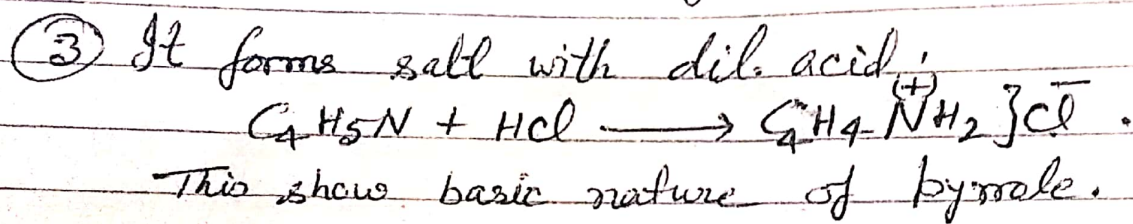 ③ It forms salt with dil. acid ;
C₄H₅N + HCl ⟶ C₄H₄N⁽⁺⁾H₂]Cl⁻ .
This show basic nature of pyrrole.